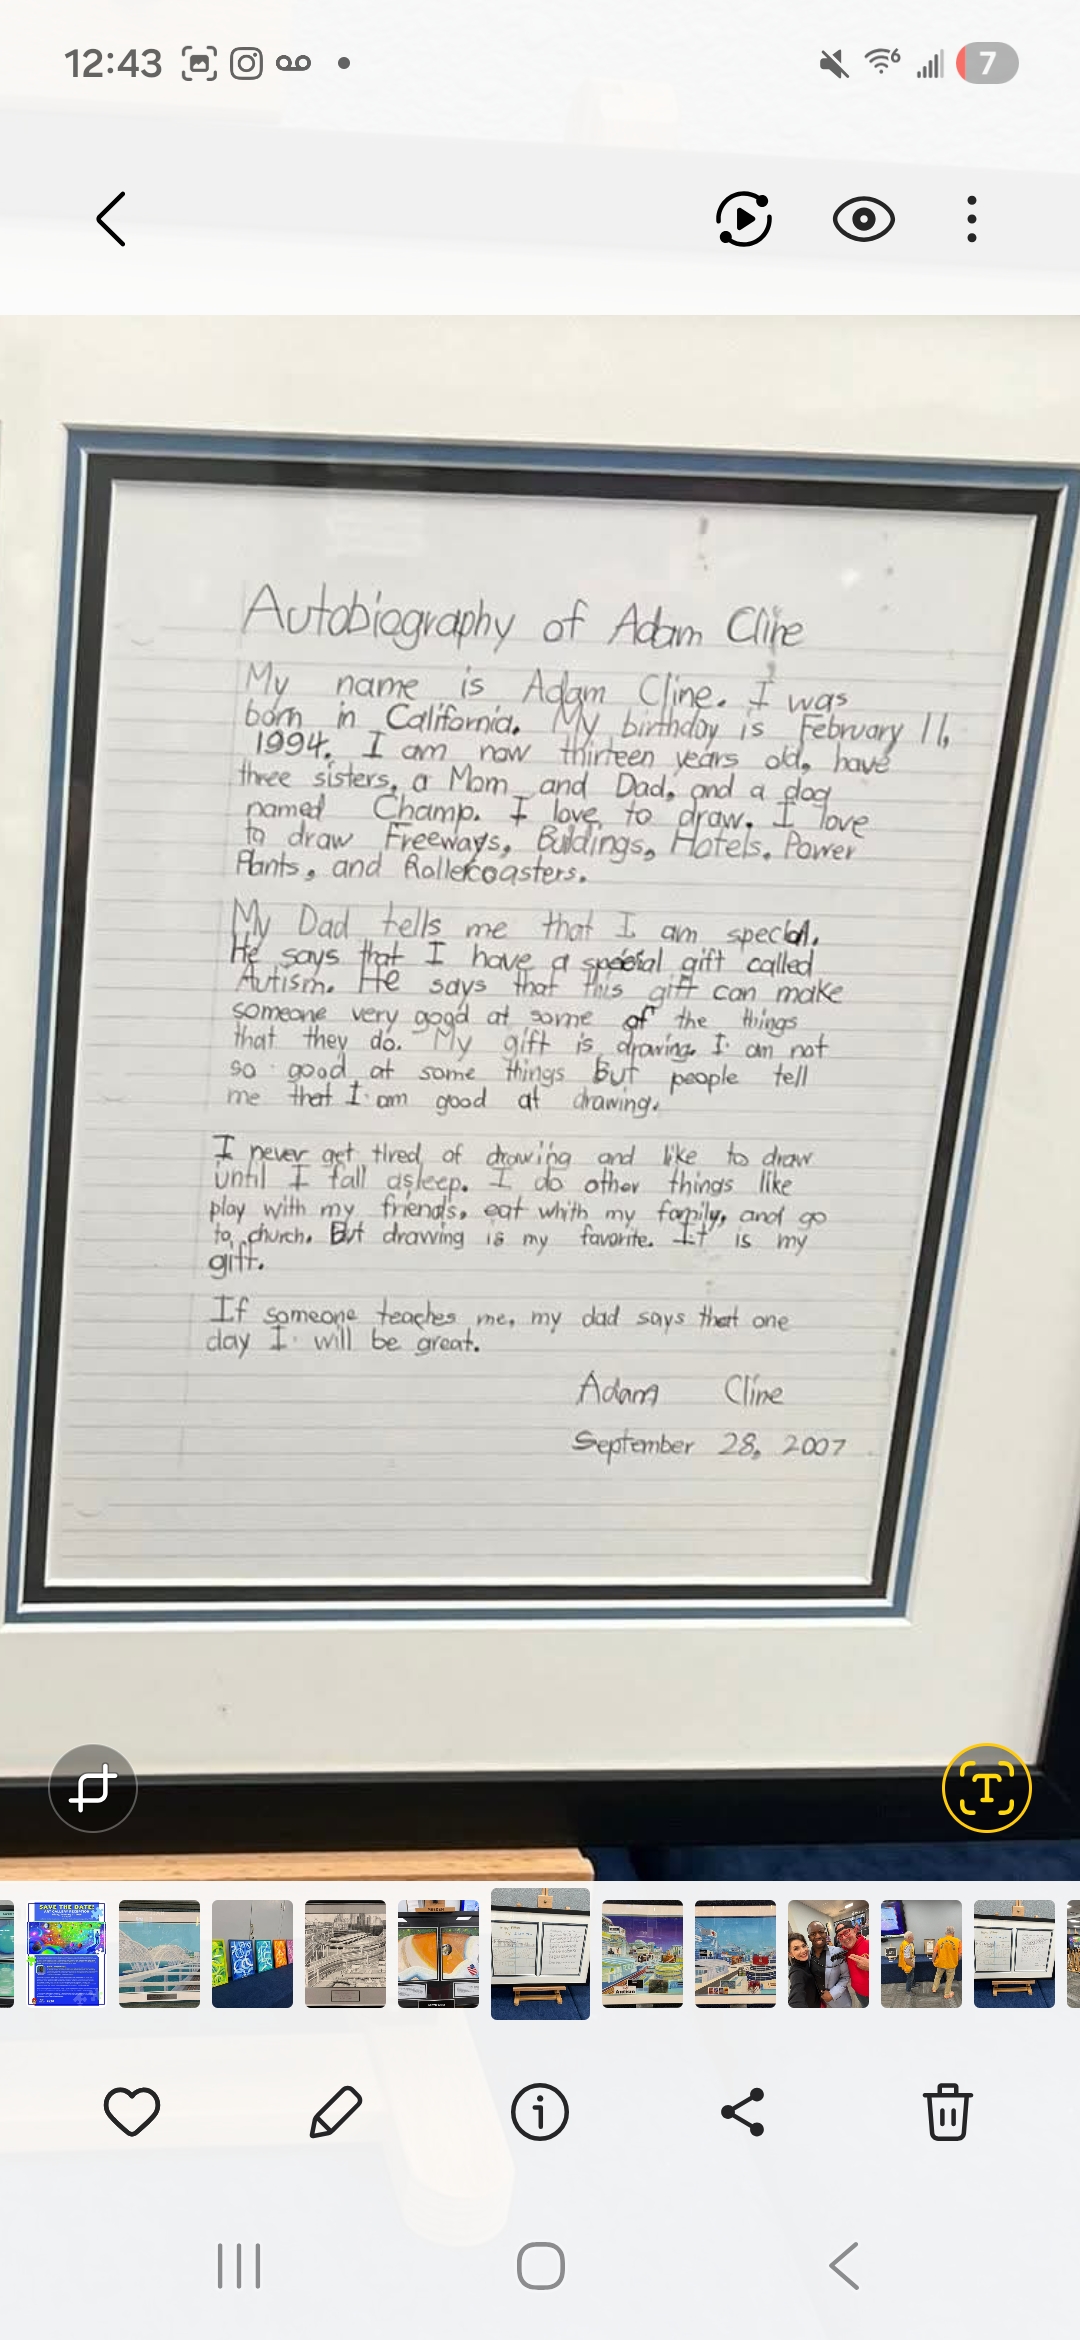 12:43
7
Autobiography of Adam Cline
My name is Adam Cline. I was
born in California. My birthday is February 11,
1994. I am now thirteen years old, have
three sisters, a Mom and Dad, and a dog
named Champ. I love to draw. I love
to draw Freeways, Buldings, Hotels, Power
Plants, and Rollercoasters.
My Dad tells me that I am special.
He says that I have a special gift called
Autism. He says that this gift can make
someone very good at some of the things
that they do. My gift is drawing. I am not
so good at some things But people tell
me that I am good at drawing.
I never get tired of drawing and like to draw
until I fall asleep. I do other things like
play with my friends, eat whith my family, and go
to church. But drawing is my favorite. It is my
gift.
If someone teaches me, my dad says that one
day I will be great.
Adam Cline
September 28, 2007
T
SAVE THE DATE!